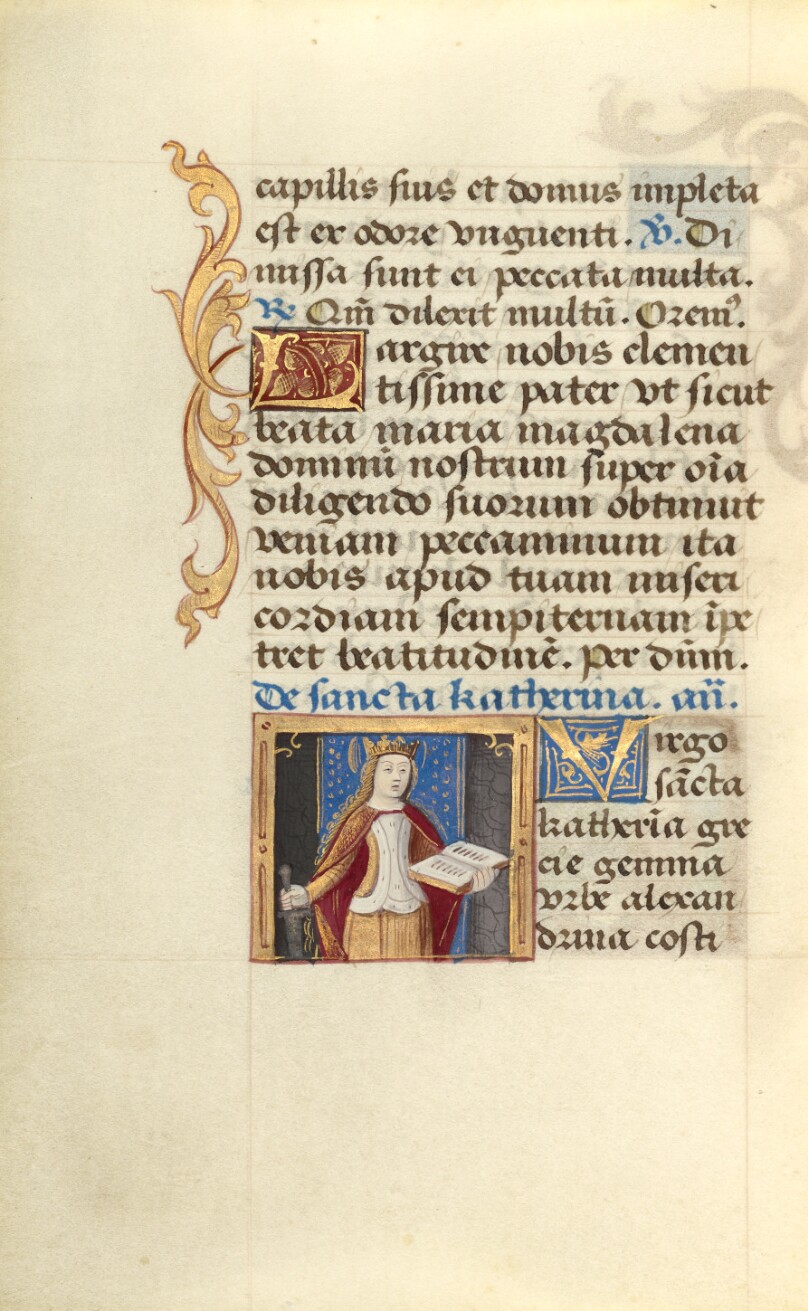 capillis suis et domus impleta
est ex odore vnguenti. ℣. Di
missa sunt ei peccata multa.
℟ Qm̄ dilexit multū. Orem⁹.
Largire nobis clemen
tissime pater vt sicut
beata maria magdalena
dominū nostrum super oīa
diligendo suorum obtinuit
veniam peccaminum ita
nobis apud tuam miseri
cordiam sempiternam īpe
tret beatitudinē. Per dn̄m.
De sancta katherina. an̄.
Virgo
sācta
katherīa gre
cie gemma
vrbe alexan
drina costi